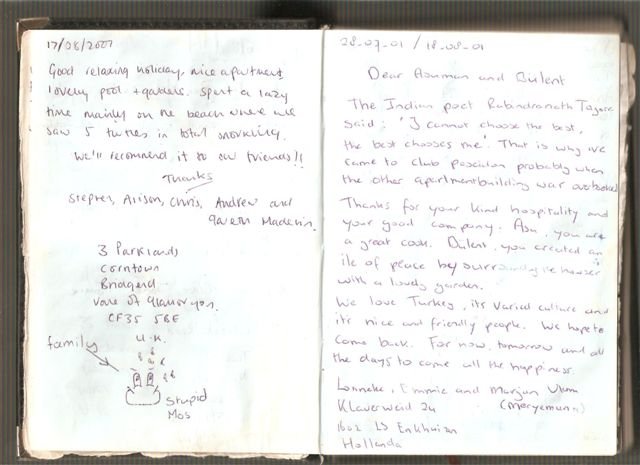 17/08/2001
Good relaxing holiday, nice apartment
lovely pool + gardens. Spent a lazy
time mainly on the beach where we
saw 5 turtles in total snorkeling.
We'll recommend it to our friends!!
Thanks
Stephen, Alison, Chris, Andrew and
Gareth
3 Parklands
Corntown
Bridgend
Vale of Glamorgan.
CF35 5BE
U.K.
family
Stupid
Mos
28-07-01 / 18-08-01
Dear Asuman and Bulent
The Indian poet Rabindranath Tagore
said: 'I cannot choose the best,
the best chooses me'. That is why we
came to club poseidon probably when
the other apartmentbuilding was overbooked
Thanks for your kind hospitality and
your good company. Asu, you are
a great cook. Bulent, you created an
ile of peace by surrounding the house
with a lovely garden.
We love Turkey, its varied culture and
it's nice and friendly people. We hope to
come back. For now, tomorrow and all
the days to come all the happiness.
Lonneke, Emmie and Marjan
Klaverweid 24
1602 LS Enkhuizen
Hollanda